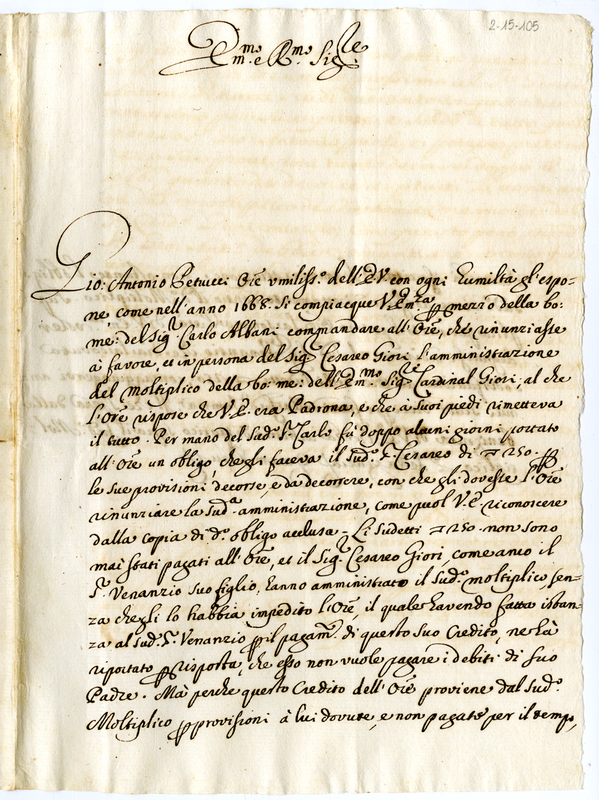 2-15-105
Em.mo e R.mo Sig.re
Gio: Antonio Petucci Ore umiliss.o dell'E.V. con ogni humiltà gl'espo-
ne come nell'anno 1668. Si compiacque V. Em.za p mezzo della bo:
me: del Sig.r Carlo Albani commandare all'Ore, che rinunziasse
à favore, et in persona del Sig.r Cesareo Giori l'amministrazione
del moltiplico della bo: me: dell'Em.mo Sig.re Cardinal Giori, al che
l'Ore rispose che V.E. era Padrona, e che à suoi piedi rimetteva
il tutto. Per mano del Sud.o S.r Carlo fù doppo alcuni giorni portato
all'Ore un obligo, che gli faceva il sud.o S.r Cesareo di 250. p
le sue provisioni decorse, e da decorrere, con che gli dovesse l'Ore
rinunziare la sud.a amministrazione, come puol V.E. riconoscere
dalla copia di d.o obligo acclusa. Li sudetti 250. non sono
mai stati pagati all'Ore, et il Sig.r Cesareo Giori, come anco il
S.r Venanzio suo figlio, hanno amministrato il sud.o moltiplico, sen-
za che gli lo habbia impedito l'Ore il quale havendo fatta istan-
za al sud.o S.r Venanzio p il pagam.to di questo suo Credito, ne hà
riportato p risposta, che esso non vuole pagare i debiti di suo
Padre. Mà perche questo Credito dell'Ore proviene dal sud.o
Moltiplico p provisioni à lui dovute, e non pagate per il tempo,